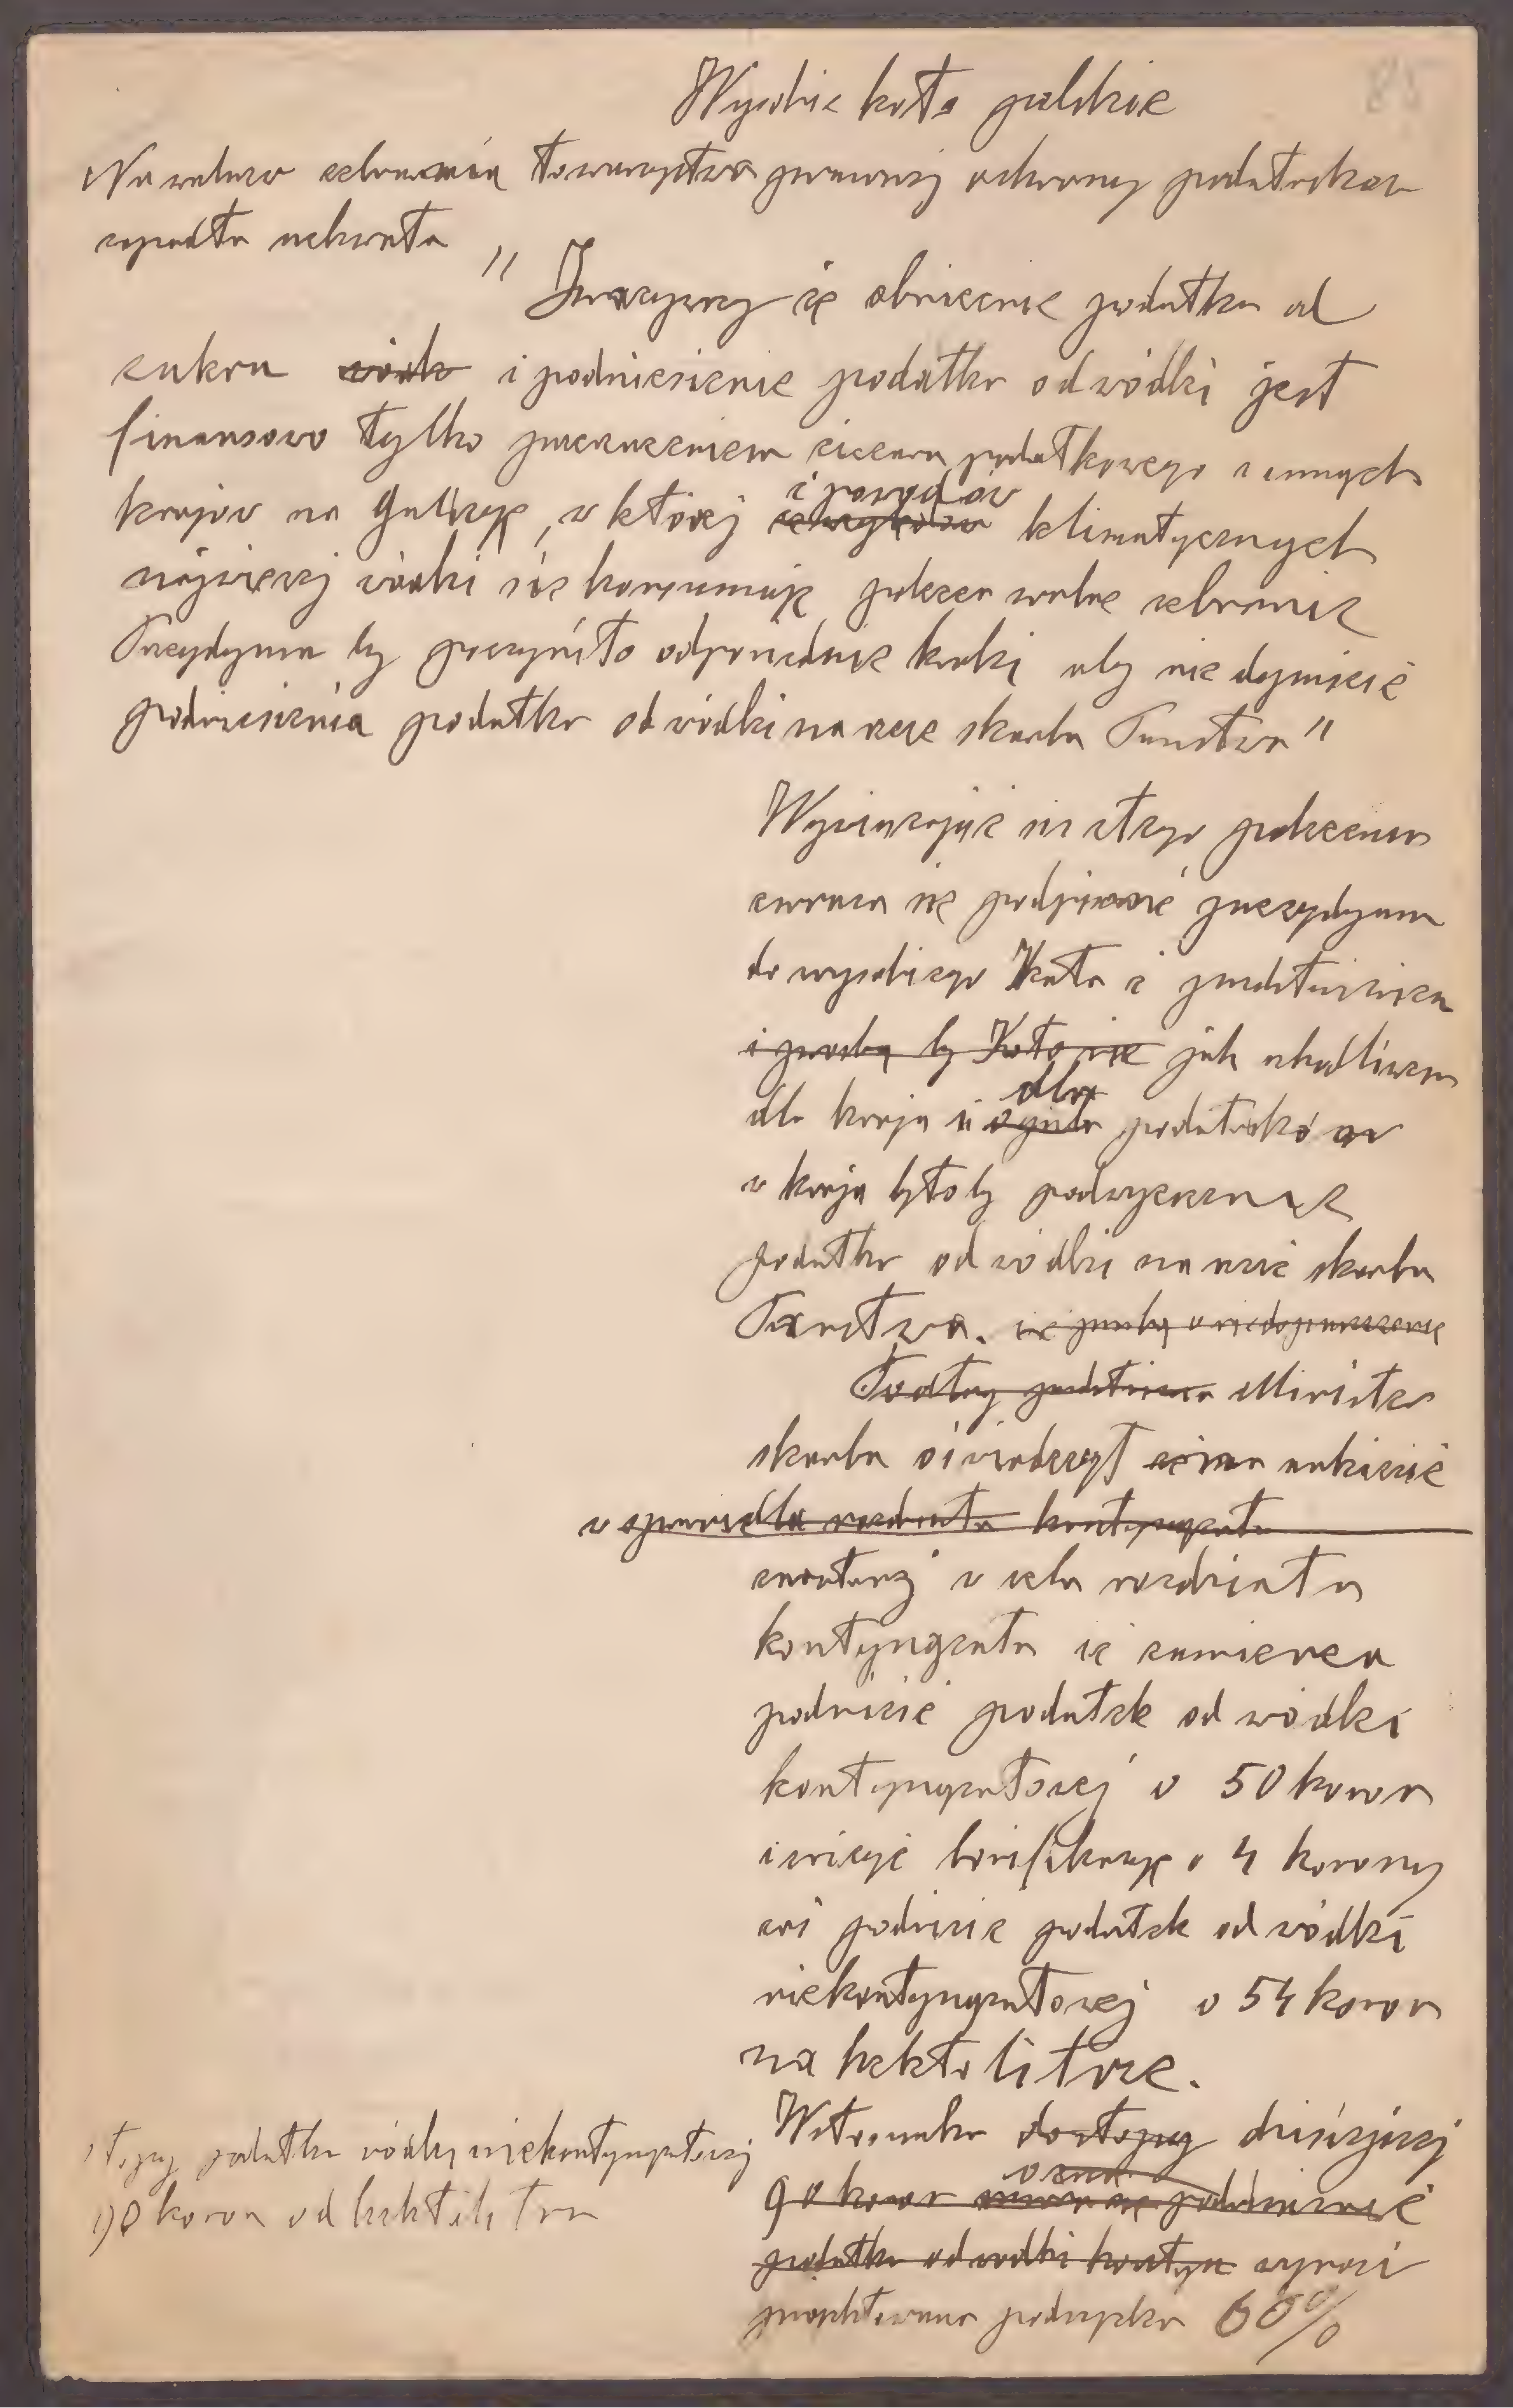 85
Wysokie koło polskie
Na walnem zebraniu towarzystwa prawnej ochrony podatników
zapadła uchwała
" Zważywszy że obniżenie podatku od
cukru wódk i podniesienie podatku od wódki jest
finansowo tylko przerzuceniem ciężaru podatkowego z innych
krajów na Galicyę, w której
z powodów
klimatycznych
najwięcej wódki się konsumuje poleca walne zebranie
Prezydyum by poczyniło odpowiednie kroki aby nie dopuścić
podniesienia podatku od wódki na rzecz skarbu Państwa"
Wywiązując się z tego polecenia
zwraca się podpisane prezydyum
do wysokiego Koła z przedstawieniem
i prośbą by Koło nie jak szkodliwem
dla
dla kraju i ogółu podatników
w kraju byłoby podwyższenie
podatku od wódki na rzecz skarbu
Państwa. i z prośbą o niedopuszczenie
Podług przedstawienia Minister
skarbu oświadczył w ankiecie
w sprawie dla rozdziału kontyngentu
zwołanej w celu rozdziału
kontyngentu iż zamierza
podnieść podatek od wódki
kontyngentowej o 50 koron
i zniżyć bonifikacyę o 4 korony
zaś podnieść podatek od wódki
niekontyngentowej o 54 koron
na hektolitrze.
W stosunku do stopy dzisiejszej
90 koron podniesienie
podatku od wódki kontyn wynosi
projektowana podwyżka 60%
stopy podatku wódki niekontyngentowej
90 koron od hektolitra